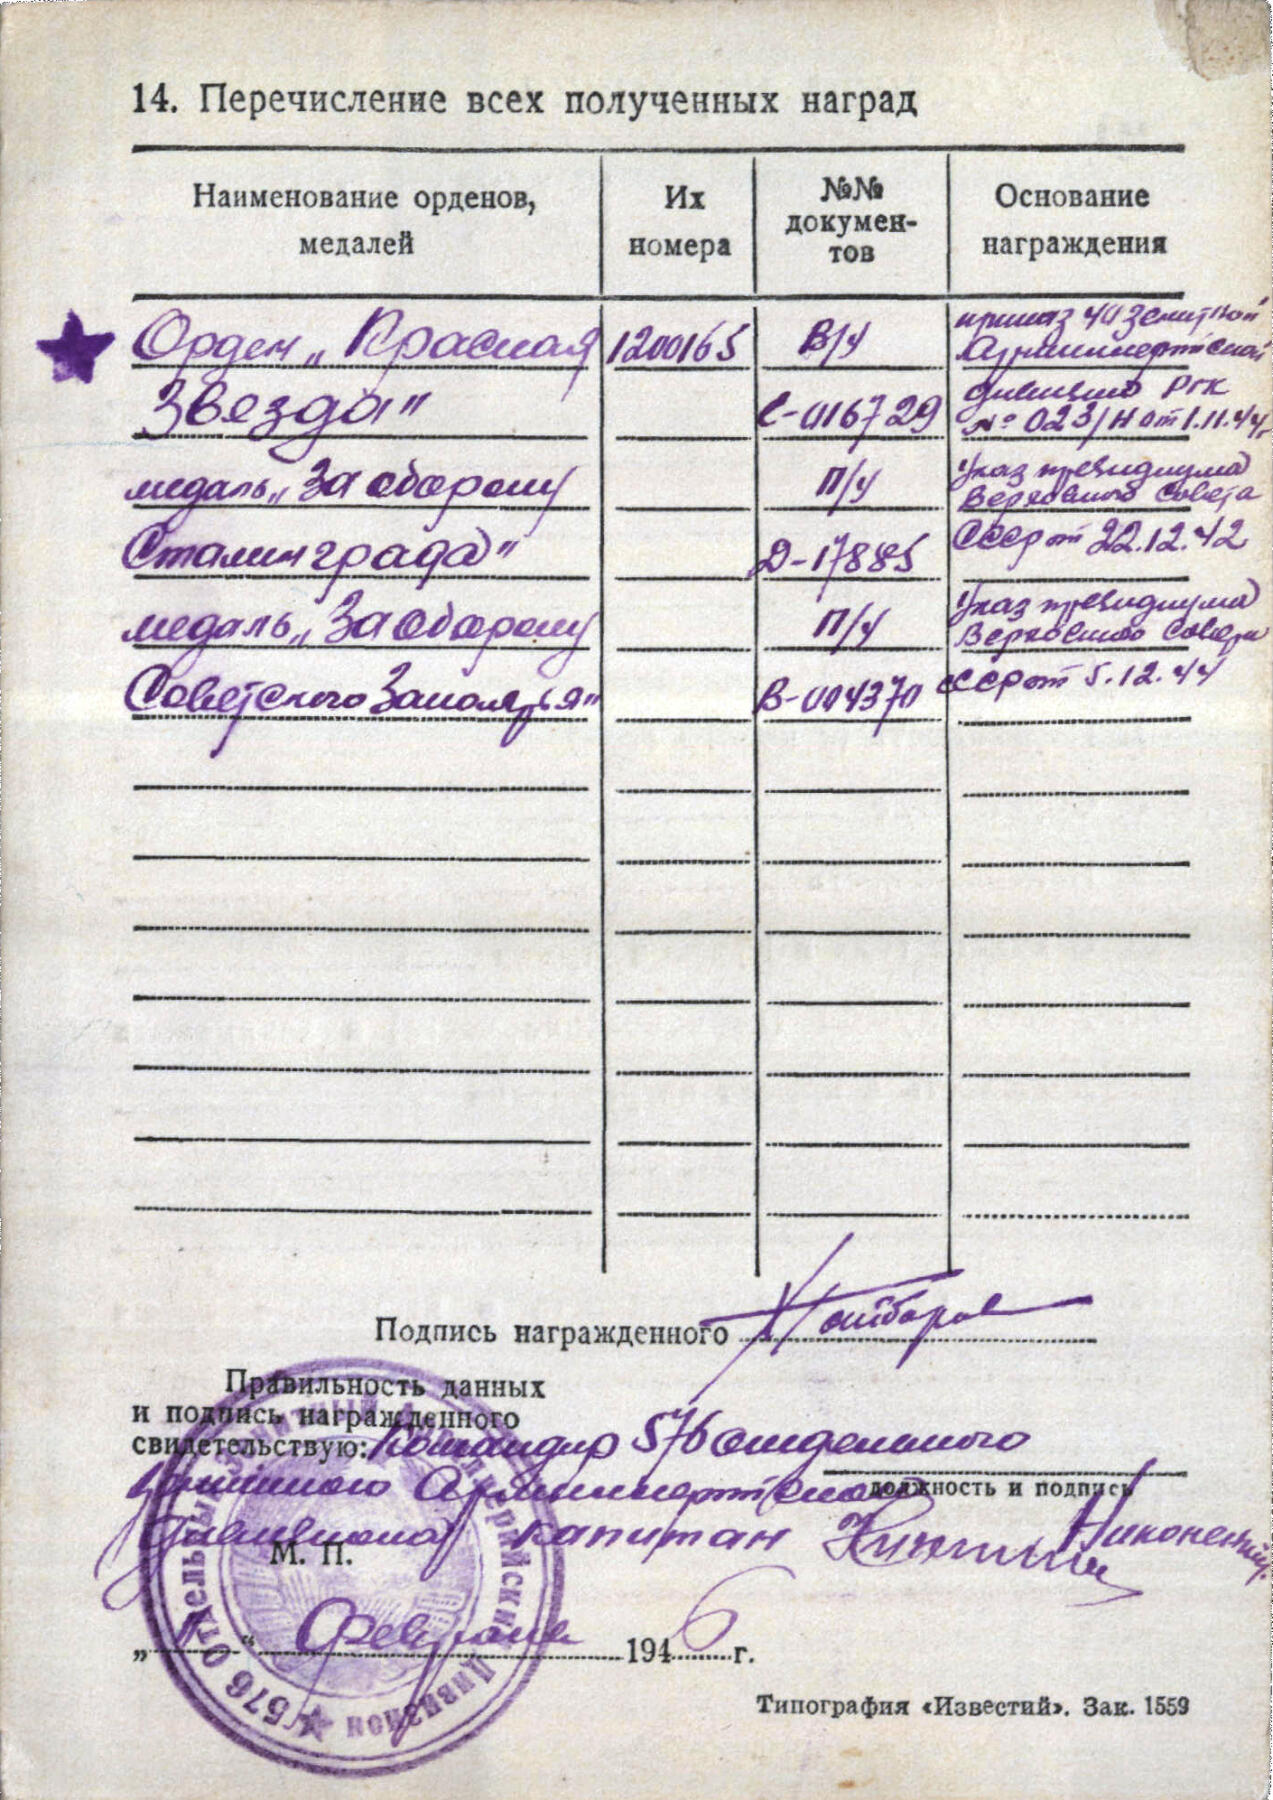 14. Перечисление всех полученных наград
Наименование орденов, медалей
Их номера
№№ докумен-тов
Основание награждения
Орден „Красная 1200165 В/у приказ 40 зенитной
Артиллерийской
Звезда" С-016729 дивизии РГК
№ 023/н от 1.11.44г
медаль „За оборону П/у Указ президиума
Верховного Совета
Сталинграда" Д-17885 СССР от 22.12.42
медаль „За оборону П/у Указ президиума
Верховного Совета
Советского Заполярья" В-004370 СССР от 5.12.44
Подпись награжденного
Правильность данных
и подпись награжденного
свидетельствую: Командир 576 отдельного
должность и подпись
зенитного Артиллерийского
дивизиона капитан Никонецкий
М. П.
„ " Февраля 1946 г.
576 Отдельный Зенитный Артиллерийский Дивизион
Типография «Известий». Зак. 1559